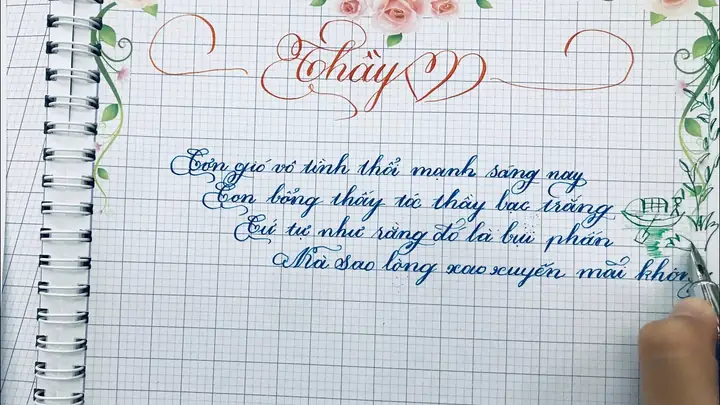 Thầy
Cơn gió vô tình thổi mạnh sáng nay
Con bỗng thấy tóc thầy bạc trắng
Cứ tự như rằng đó là bụi phấn
Mà sao lòng xao xuyến mãi khôn